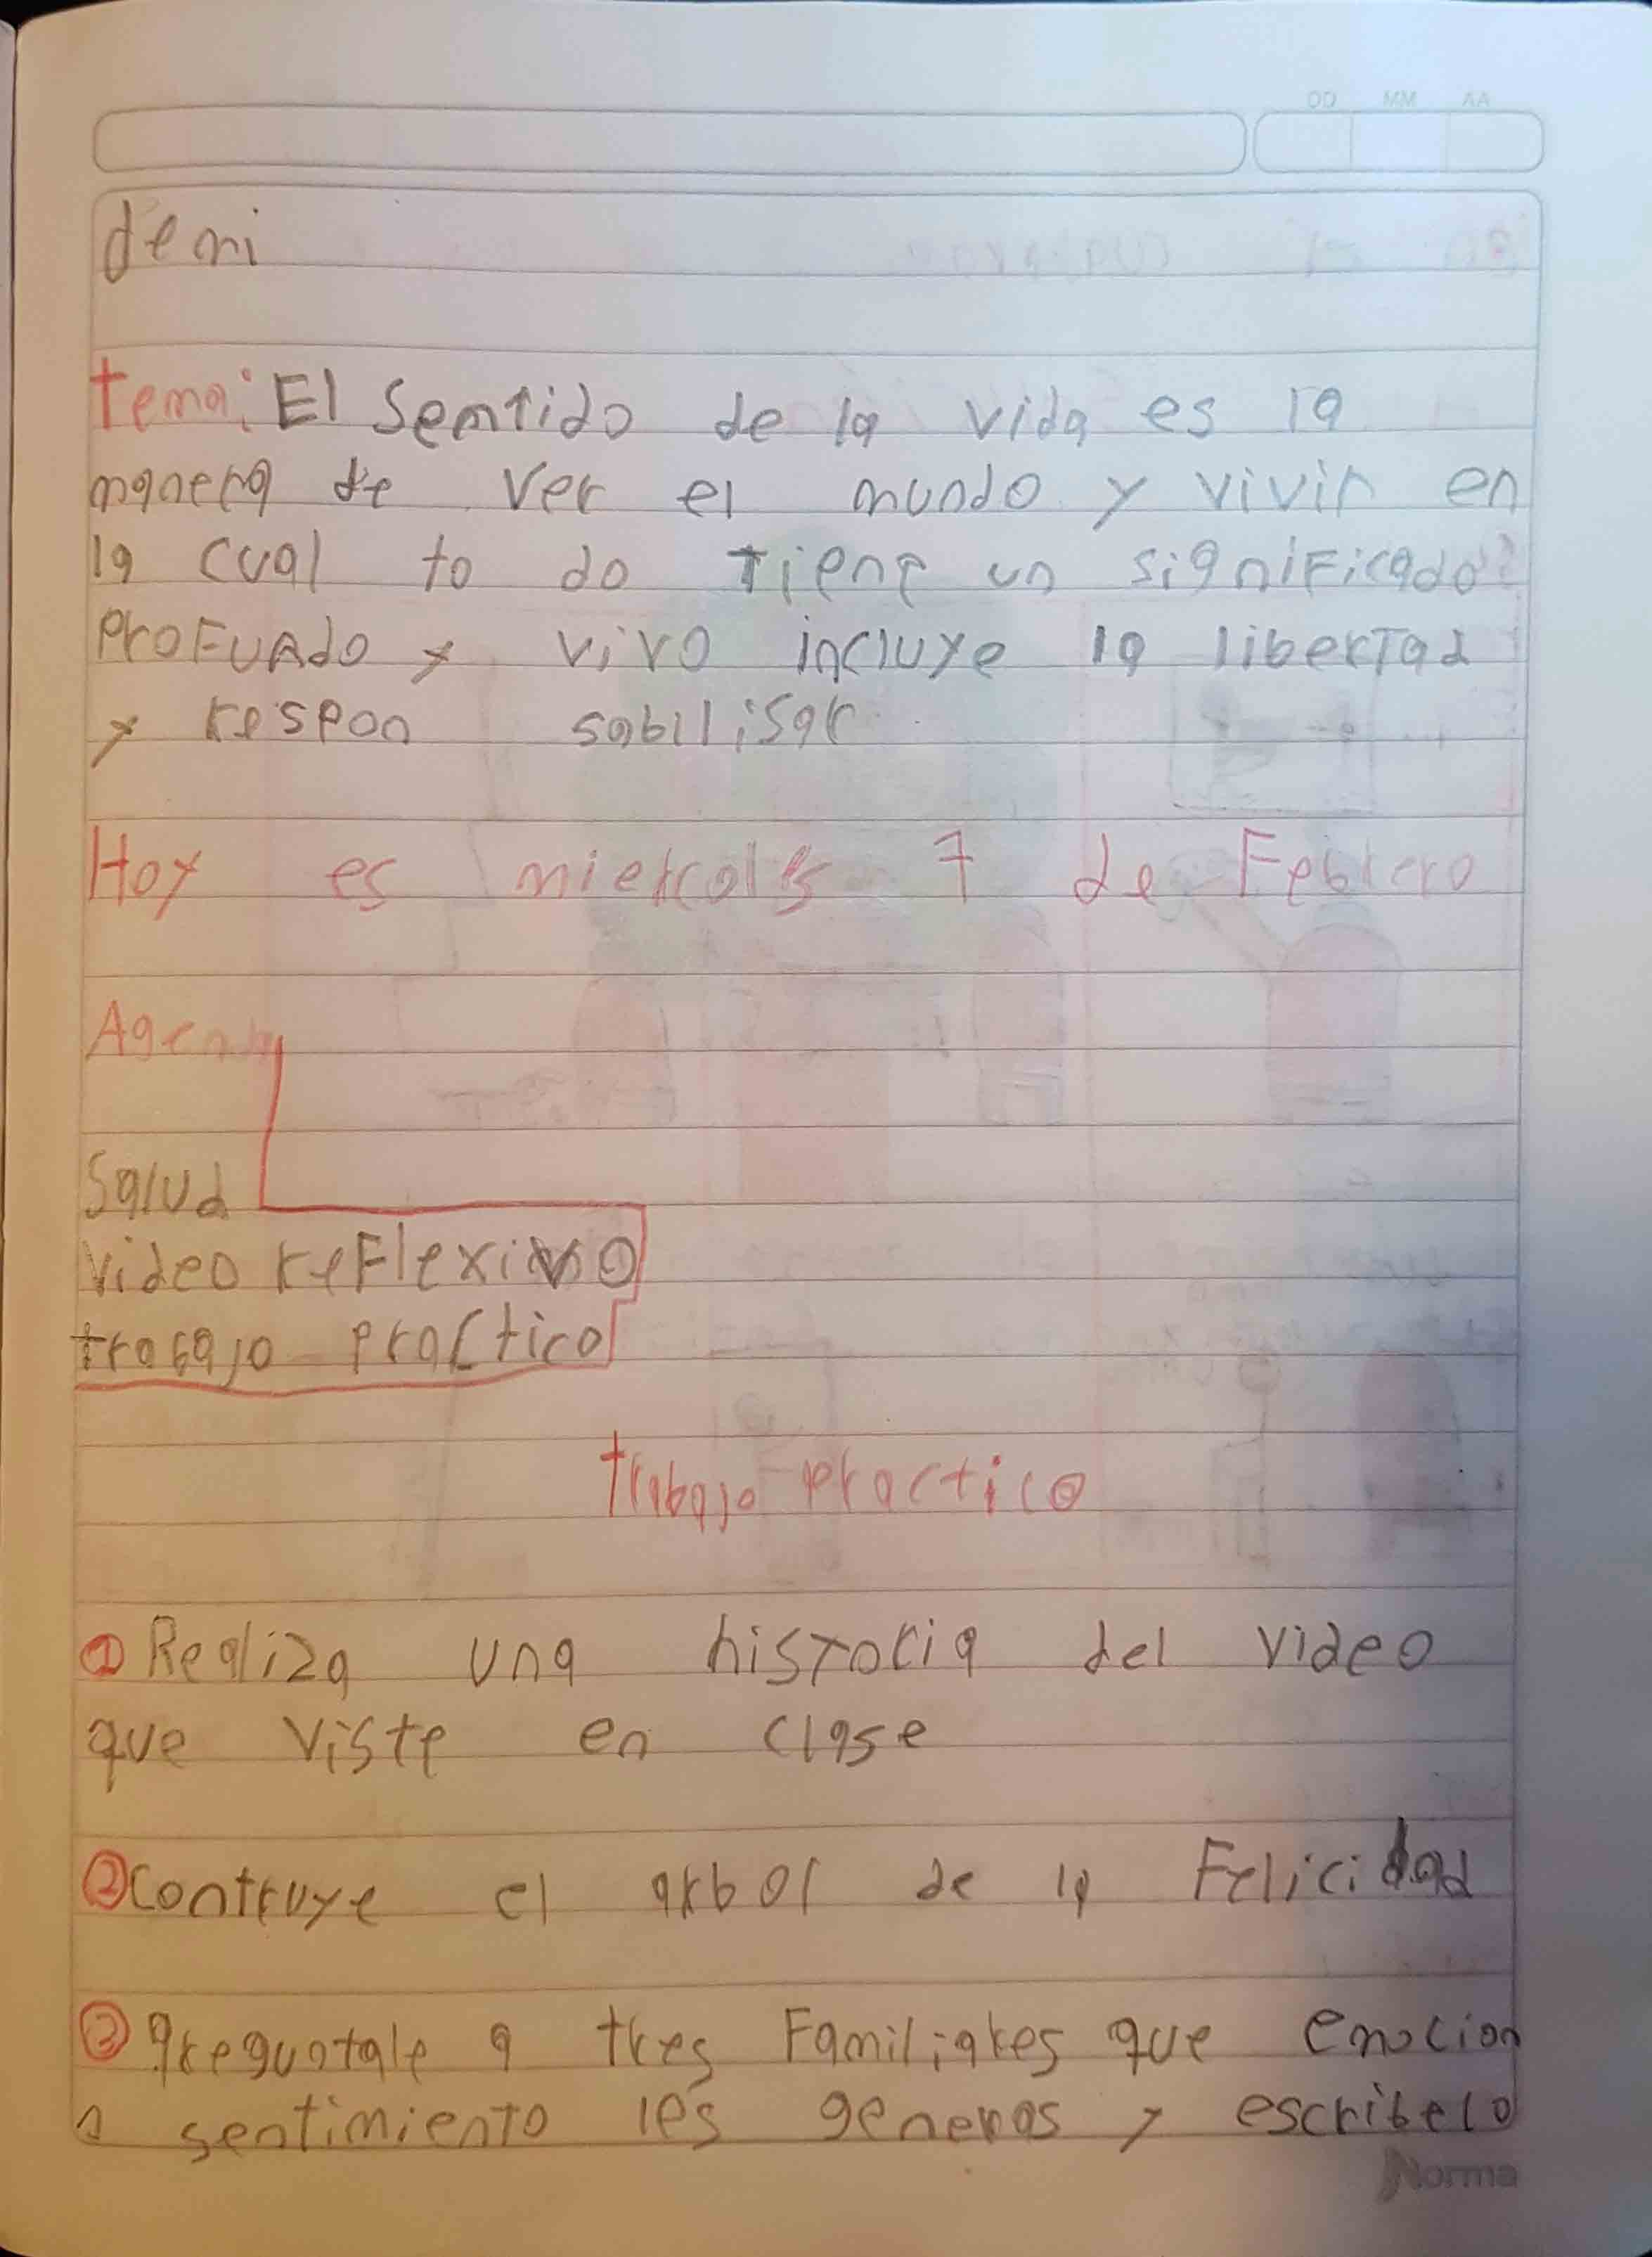 DD MM AA
de mi
tema: El Sentido de la vida es la
manera de ver el mundo y vivir en
la cual to do tiene un significado
profundo y vivo incluye la libertad
y respon sabilisar
Hoy es miercoles 7 de Febrero
Agenda
Salud
video reflexivo
trabajo practico
trabajo practico
① Realiza una historia del video
que viste en clase
② Contruye el arbol de la Felicidad
③ Preguntale a tres Familiares que emocion
o sentimiento les generas y escribelo
Norma